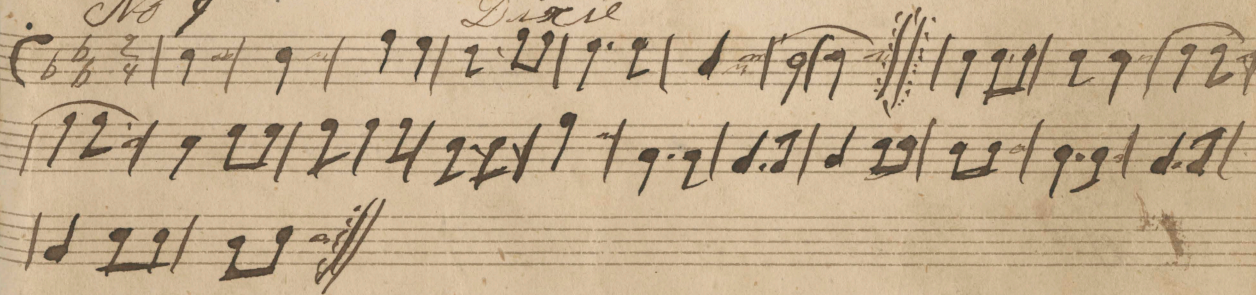 No 9 Dixie
2
4